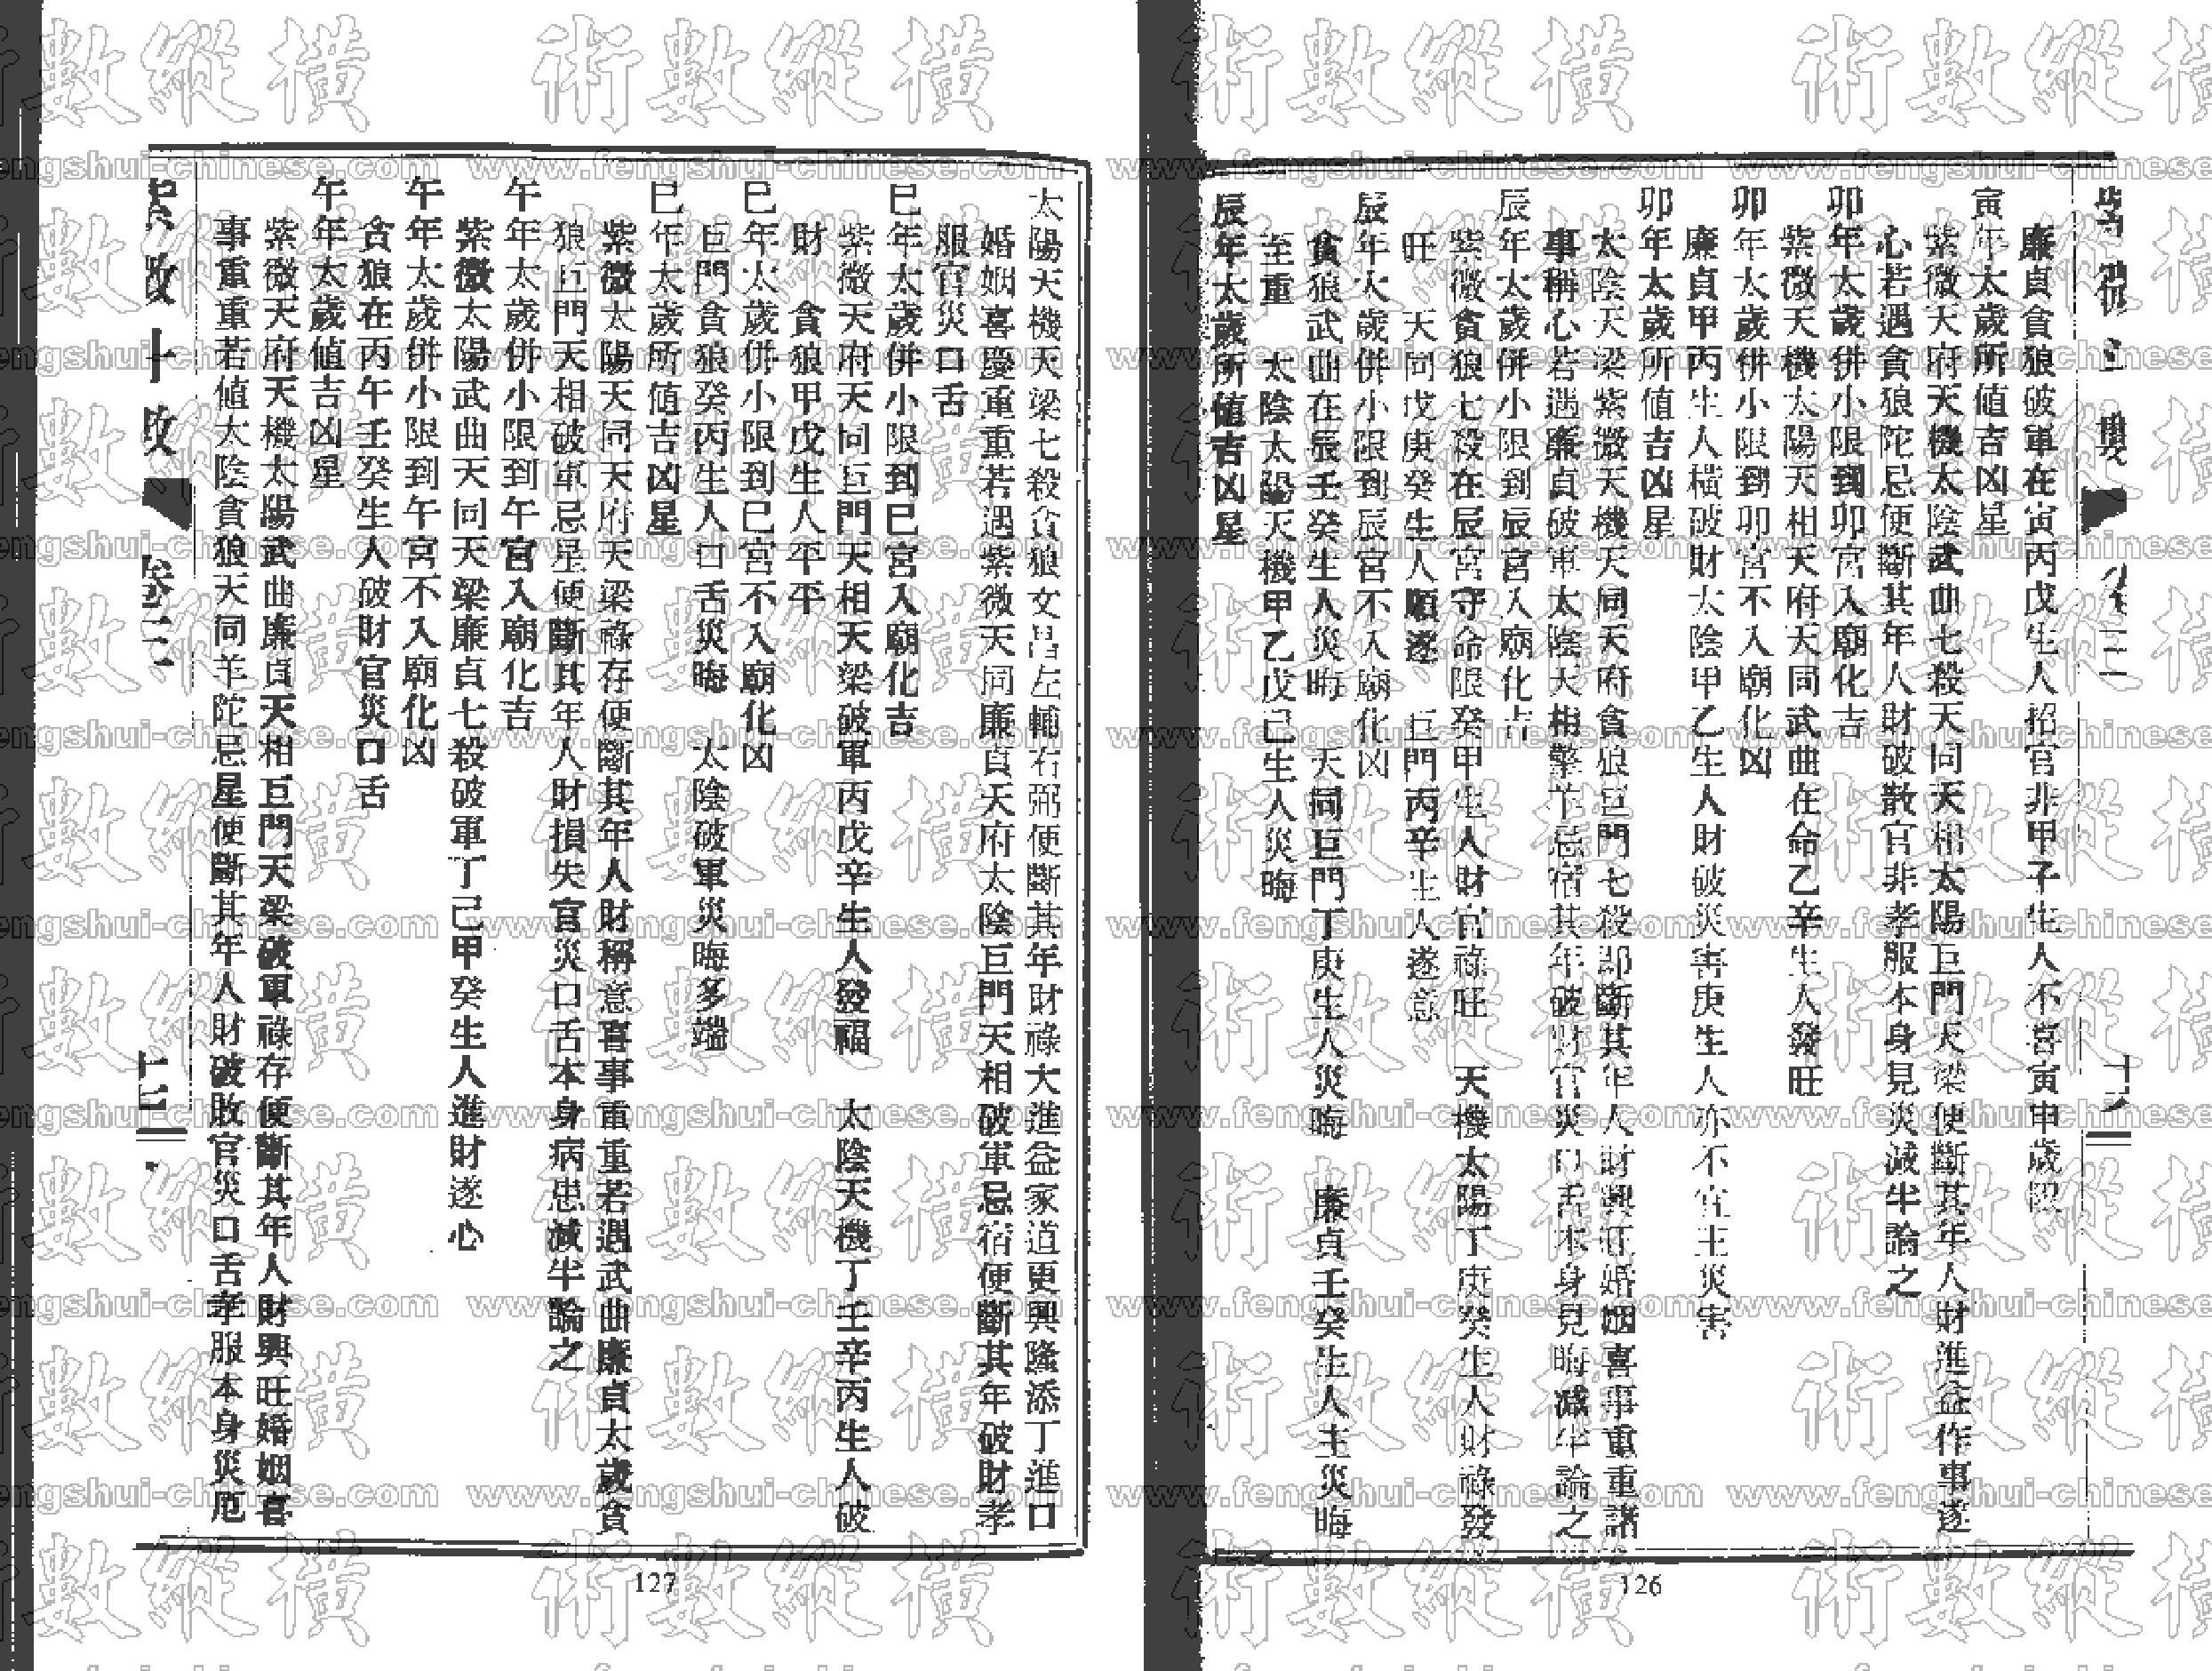 廉貞貪狼破軍在寅丙戊生人招官非甲子生人不喜寅申歲限
寅年太歲所值吉凶星
紫微天府天機太陰武曲七殺天同天相太陽巨門天梁便斷其年人財進益作事遂
心若遇貪狼陀忌便斷其年人財破散官非孝服本身見災減半論之
卯年太歲併小限到卯宮入廟化吉
紫微天機太陽天相天府天同武曲在命乙辛生人發旺
卯年太歲併小限到卯宮不入廟化凶
廉貞甲丙生人橫破財太陰甲乙生人財破災害庚生人亦不宜主災害
卯年太歲所值吉凶星
太陰天梁紫微天機天同天府貪狼巨門七殺即斷其年人財興旺婚姻喜事重重諸
事稱心若遇廉貞破軍太陰天相擎羊忌宿其年破財官災口舌本身見晦減半論之
辰年太歲併小限到辰宮入廟化吉
紫微貪狼七殺在辰宮守命限癸甲生人財官祿旺 天機太陽丁庚癸生人財祿發
旺 天同戊庚癸生人順遂 巨門丙辛生人遂意
辰年太歲併小限到辰宮不入廟化凶
貪狼武曲在辰壬癸生人災晦 天同巨門丁庚生人災晦 廉貞壬癸生人主災晦
至重 太陰太陽天機甲乙戊己生人災晦
辰年太歲所值吉凶星
126
太陽天機天梁七殺貪狼文昌左輔右弼便斷其年財祿大進益家道更興隆添丁進口
婚姻喜慶重重若遇紫微天同廉貞天府太陰巨門天相破軍忌宿便斷其年破財孝
服官災口舌
巳年太歲併小限到巳宮入廟化吉
紫微天府天同巨門天相天梁破軍丙戊辛生人發福 太陰天機丁壬辛丙生人破
財 貪狼甲戊生人平平
巳年太歲併小限到巳宮不入廟化凶
巨門貪狼癸丙生人口舌災晦 太陰破軍災晦多端
巳年太歲所值吉凶星
紫微太陽天同天府天梁祿存便斷其年人財稱意喜事重重若遇武曲廉貞太歲貪
狼巨門天相破軍忌星便斷其年人財損失官災口舌本身病患減半論之
午年太歲併小限到午宮入廟化吉
紫微太陽武曲天同天梁廉貞七殺破軍丁己甲癸生人進財遂心
午年太歲併小限到午宮不入廟化凶
貪狼在丙午壬癸生人破財官災口舌
午年太歲值吉凶星
紫微天府天機太陽武曲廉貞天相巨門天梁破軍祿存便斷其年人財興旺婚姻喜
事重重若值太陰貪狼天同羊陀忌星便斷其年人財破敗官災口舌孝服本身災厄
卷三
127
術數縱橫
www.fengshui-chinese.com